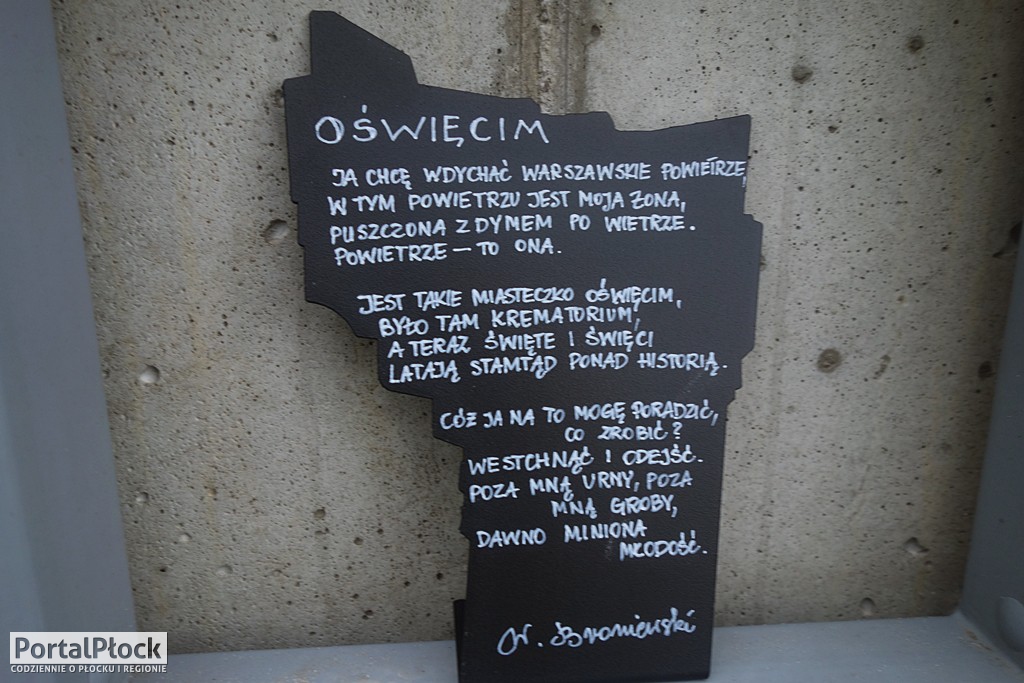 OŚWIĘCIM
JA CHCĘ WDYCHAĆ WARSZAWSKIE POWIETRZE,
W TYM POWIETRZU JEST MOJA ŻONA,
PUSZCZONA Z DYMEM PO WIETRZE.
POWIETRZE — TO ONA.
JEST TAKIE MIASTECZKO OŚWIĘCIM,
BYŁO TAM KREMATORIUM,
A TERAZ ŚWIĘTE I ŚWIĘCI
LATAJĄ STAMTĄD PONAD HISTORIĄ.
CÓŻ JA NA TO MOGĘ PORADZIĆ,
CO ZROBIĆ?
WESTCHNĄĆ I ODEJŚĆ.
POZA MNĄ URNY, POZA
MNĄ GROBY,
DAWNO MINIONA
MŁODOŚĆ.
W. Broniewski
PortalPłock
CODZIENNIE O PŁOCKU I REGIONIE